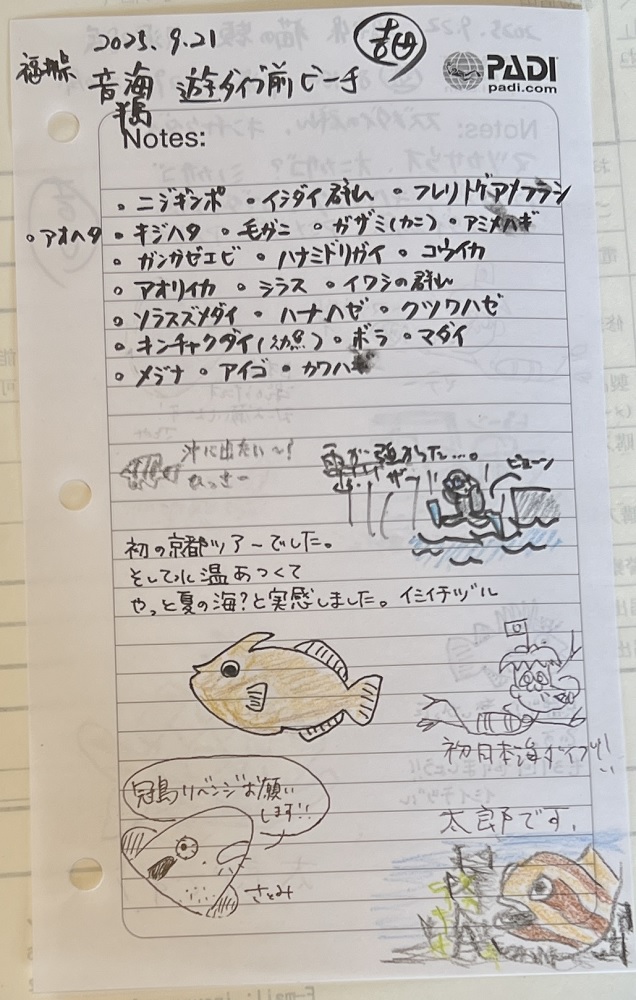 2025.9.21
吉田
福井県
音海半島 遊ダイブ前ビーチ
PADI
padi.com
Notes:
・ニジギンポ ・イシダイ群れ ・フレリトゲアメフラシ
・アオハタ ・キジハタ ・毛ガニ ・ガザミ(カニ) ・アミメハギ
・ガンガゼエビ ・ハナミドリガイ ・コウイカ
・アオリイカ ・シラス ・イワシの群れ
・ソラスズメダイ ・ハナハゼ ・クツワハゼ
・キンチャクダイ(幼魚) ・ボラ ・マダイ
・メジナ ・アイゴ ・カワハギ
沖に出たい〜!
ひっさー
雨が強かった…。
ザー!!
ビューン
初の京都ツアーでした。
そして水温あつくて
やっと夏の海?と実感しました。イシイチヅル
初日本海ダイブ!!
冠島リベンジお願い
します!!
さとみ
太郎です.